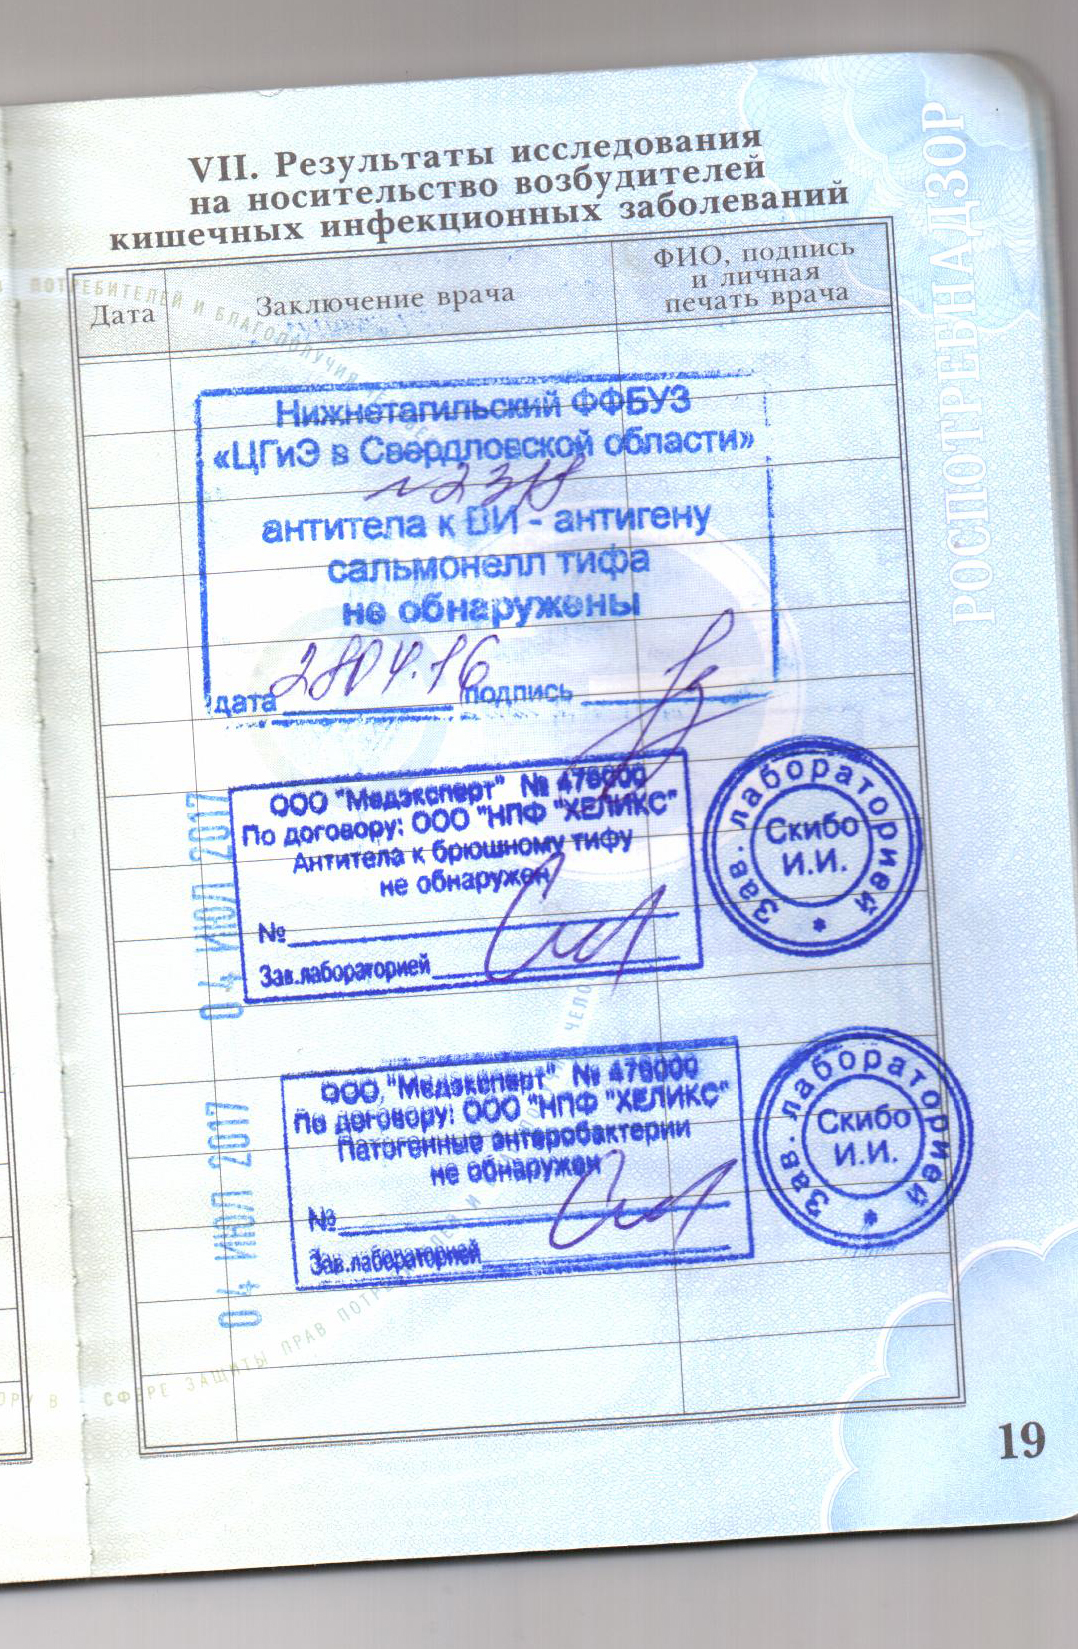 VII. Результаты исследования
на носительство возбудителей
кишечных инфекционных заболеваний
Дата
Заключение врача
ФИО, подпись
и личная
печать врача
Нижнетагильский ФФБУЗ
«ЦГиЭ в Свердловской области»
антитела к ВИ - антигену
сальмонелл тифа
не обнаружены
дата 28.04.16 подпись
04 ИЮЛ 2017
ООО "Медэксперт" № 478000
По договору: ООО "НПФ "ХЕЛИКС"
Антитела к брюшному тифу
не обнаружен
№
Зав.лабораторией
Зав. лабораторией *
Скибо
И.И.
04 ИЮЛ 2017
ООО "Медэксперт" № 478000
По договору: ООО "НПФ "ХЕЛИКС"
Патогенные энтеробактерии
не обнаружен
№
Зав.лабораторией
Зав. лабораторией *
Скибо
И.И.
РОСПОТРЕБНАДЗОР
19